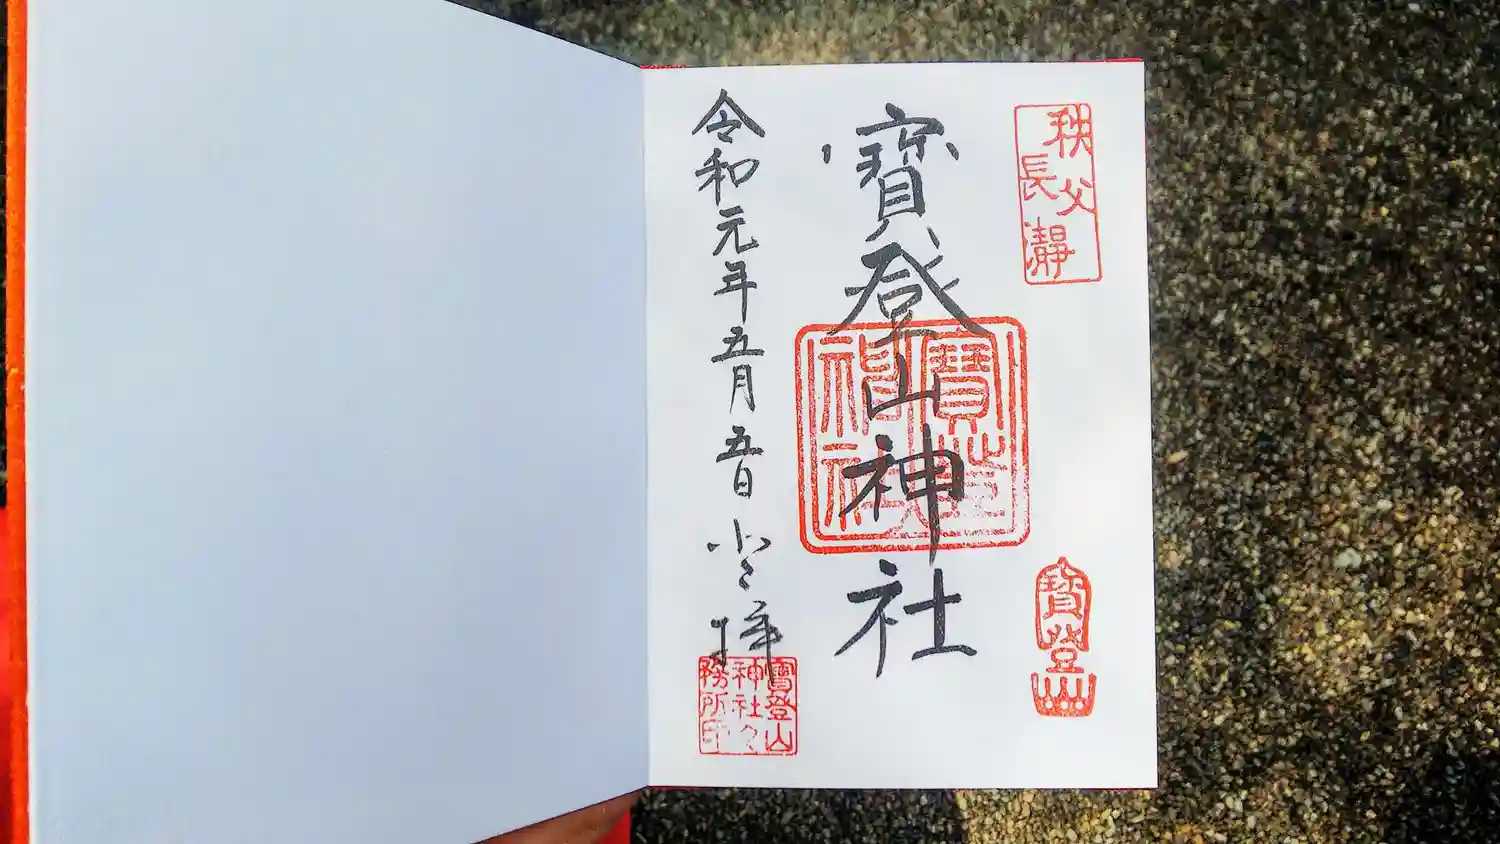 秩父
長瀞
寶登山
寶登山神社
寶登山
神社
令和元年五月五日
拝
寶登山
神社々
務所印